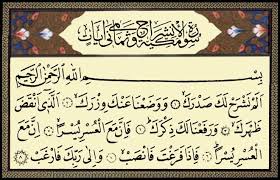 سُورَةُ الْاِنْشِرَاحِ مَكِّيَّةٌ وَهِيَ ثَمَانِي اٰيَاتٍ
بِسْــــمِ اللهِ الرَّحْمٰنِ الرَّحِيمِ
اَلَمْ نَشْرَحْ لَكَ صَدْرَكَ ۞ وَوَضَعْنَا عَنْكَ وِزْرَكَ ۞ اَلَّذِي اَنْقَضَ
ظَهْرَكَ ۞ وَرَفَعْنَا لَكَ ذِكْرَكَ ۞ فَاِنَّ مَعَ الْعُسْرِ يُسْرًا ۞ اِنَّ مَعَ
الْعُسْرِ يُسْرًا ۞ فَاِذَا فَرَغْتَ فَانْصَبْ ۞ وَاِلٰى رَبِّكَ فَارْغَبْ ۞